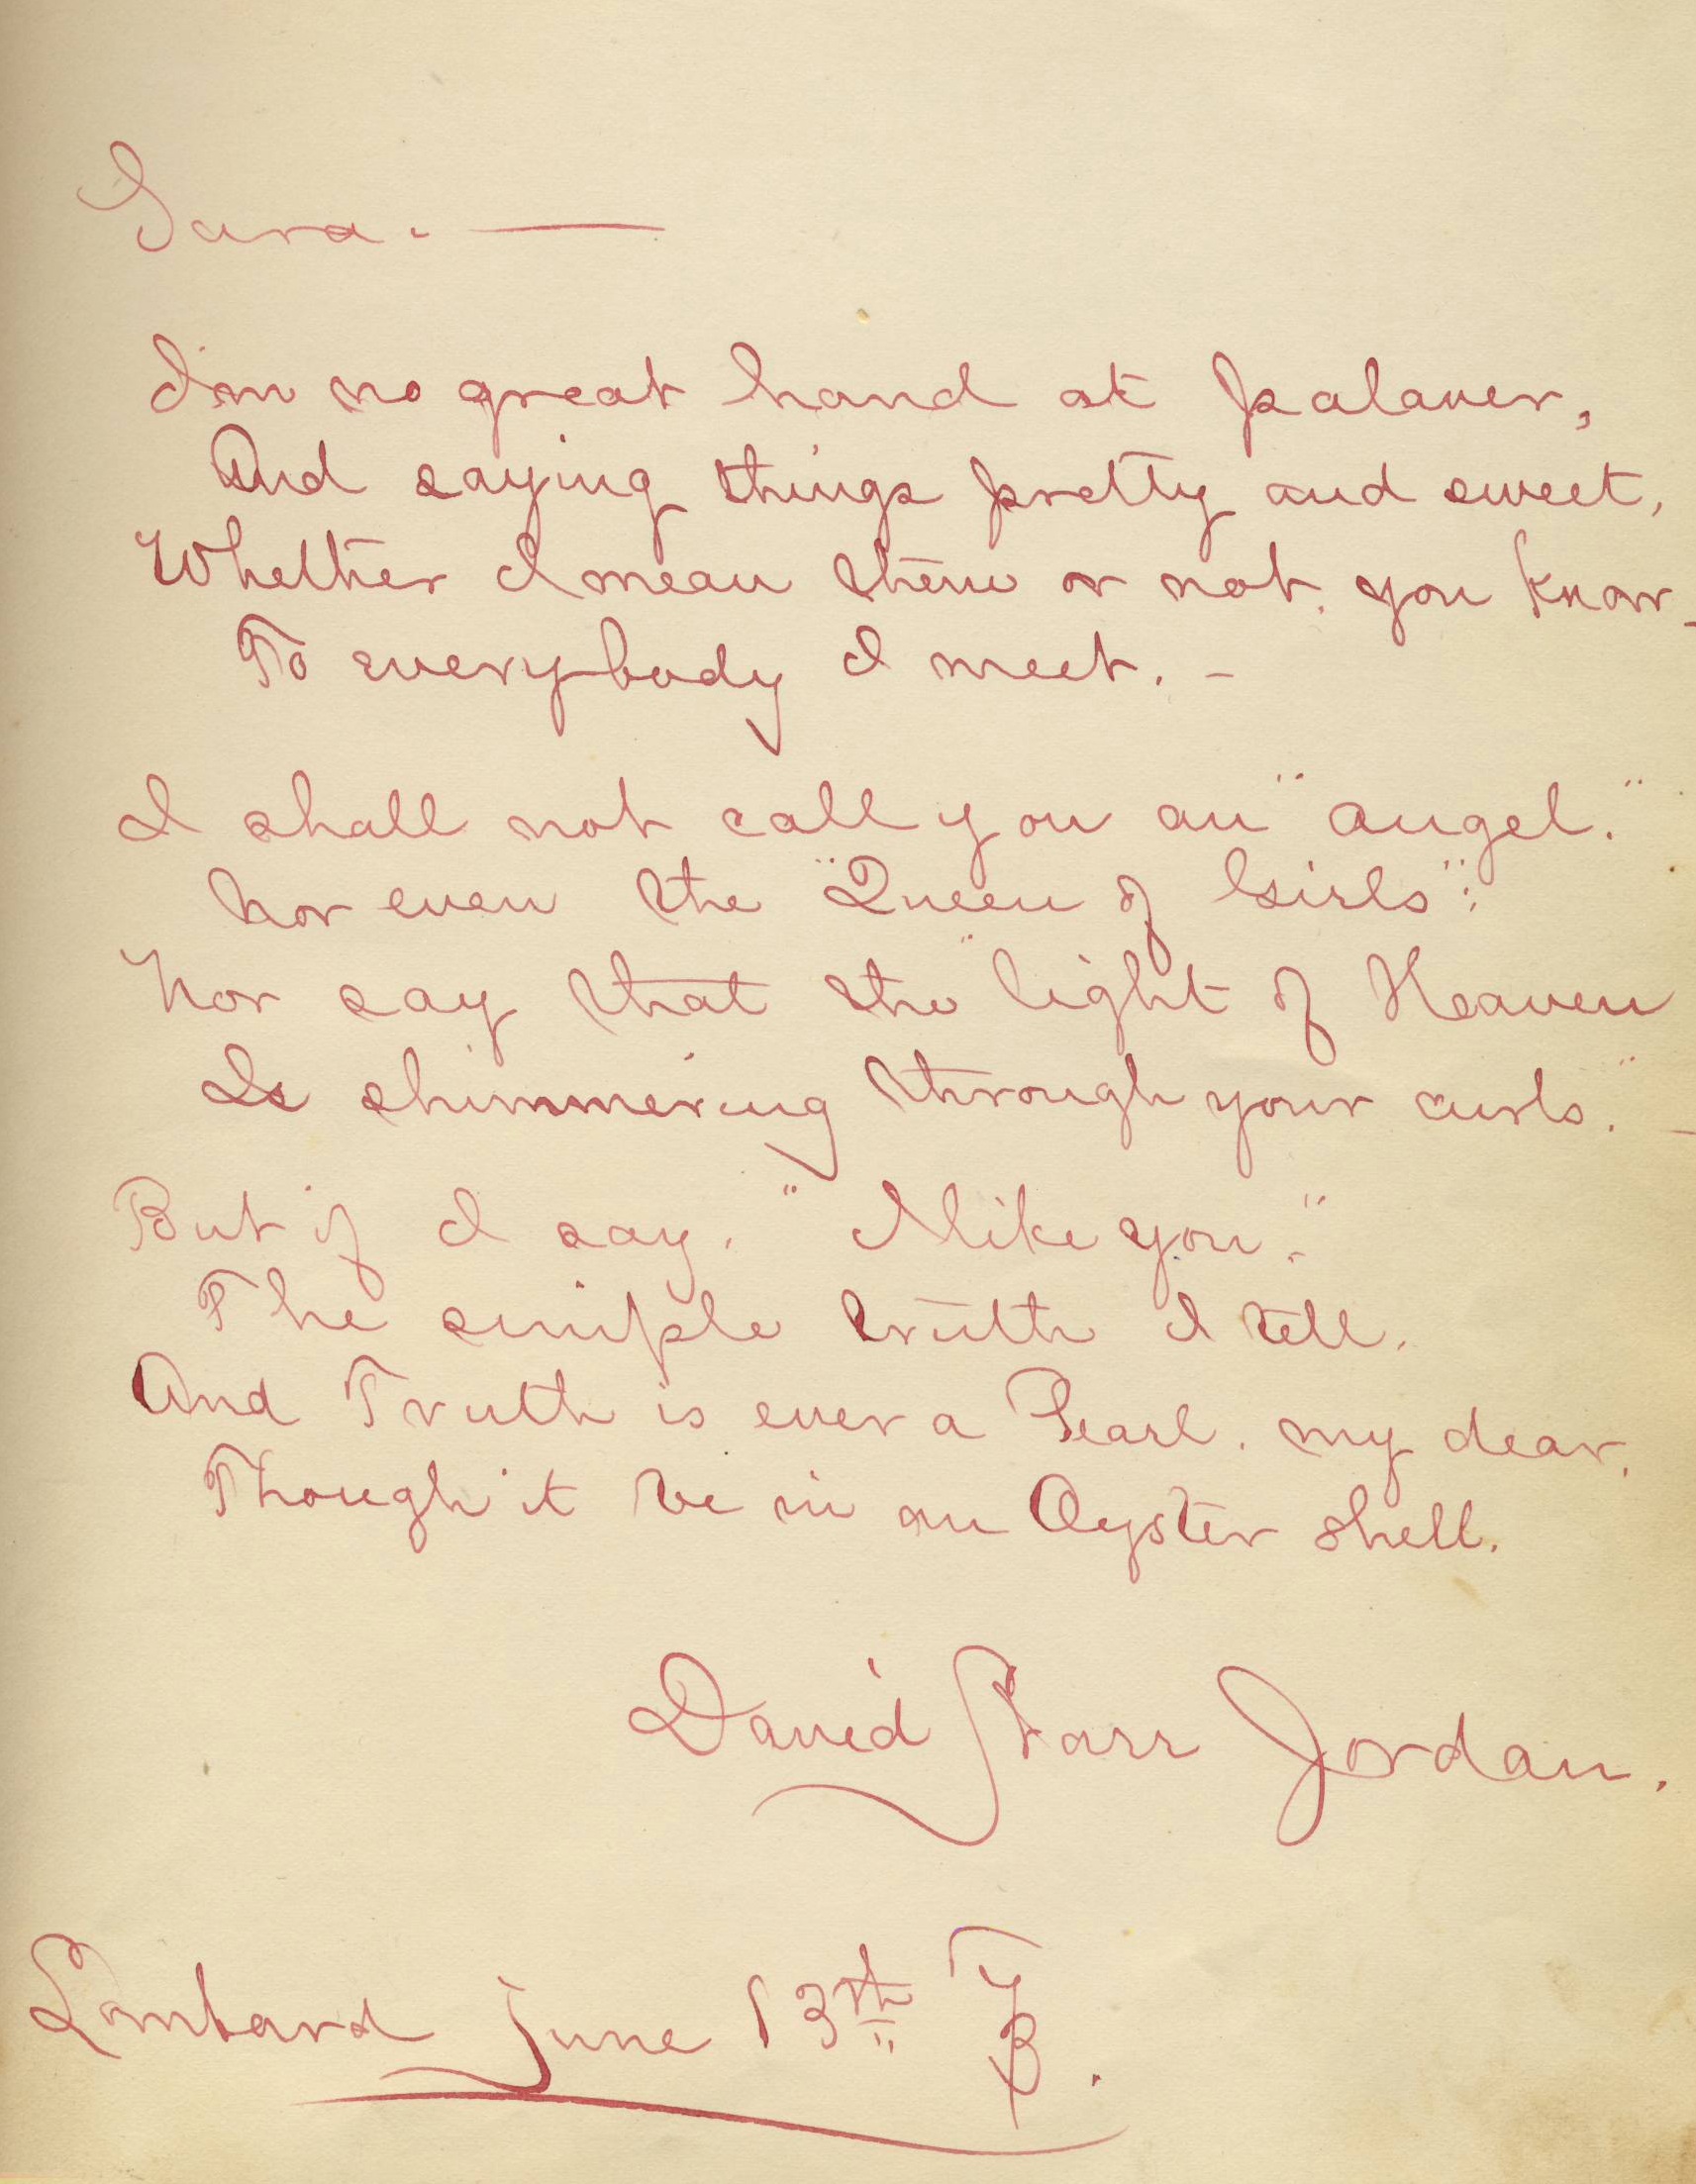 Sara. —
I'm no great hand at palaver,
And saying things pretty and sweet,
Whether I mean them or not, you know –
To everybody I meet. –
I shall not call you an "angel."
Nor even the "Queen of Girls":
Nor say that the "light of Heaven
Is shimmering through your curls." –
But if I say, "I like you."
The simple truth I tell.
And Truth is ever a Pearl, my dear,
Though it be in an Oyster shell.
David Starr Jordan.
Lombard June 13th 73.